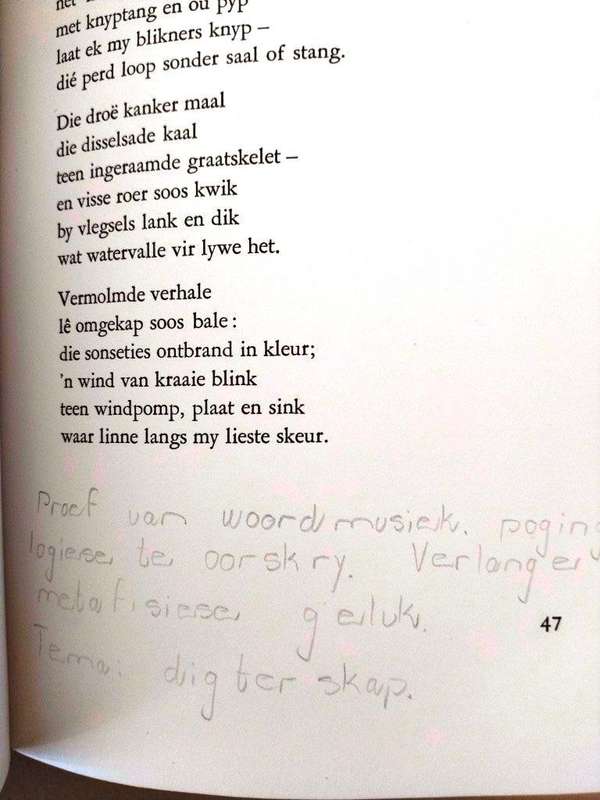 net
met knyptang en ou pyp
laat ek my blikners knyp –
dié perd loop sonder saal of stang.
Die droë kanker maal
die disselsade kaal
teen ingeraamde graatskelet –
en visse roer soos kwik
by vlegsels lank en dik
wat watervalle vir lywe het.
Vermolmde verhale
lê omgekap soos bale:
die sonseties ontbrand in kleur;
'n wind van kraaie blink
teen windpomp, plaat en sink
waar linne langs my lieste skeur.
Proef van woordmusiek. poging
logiese te oorskry. Verlange
metafisiese geluk.
47
Tema: digterskap.